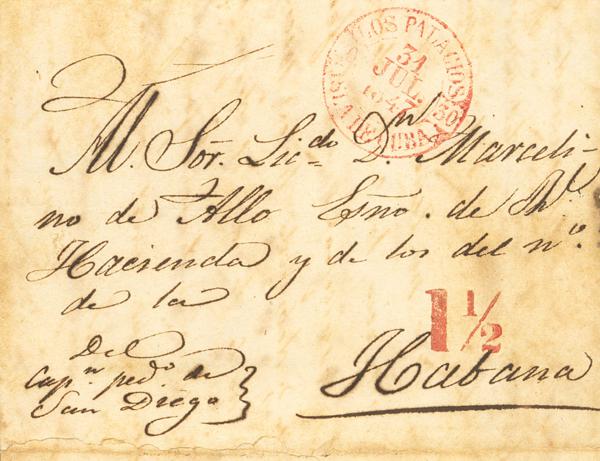 LOS PALACIOS
31
JUL
1847
30
CUBA
M. Sor. Licdo Dn Marceli-
no de Allo Esno. de Rl.
Hacienda y de los del no.
de la
1 1/2
Habana
Del
Capn. pedo. de
San Diego